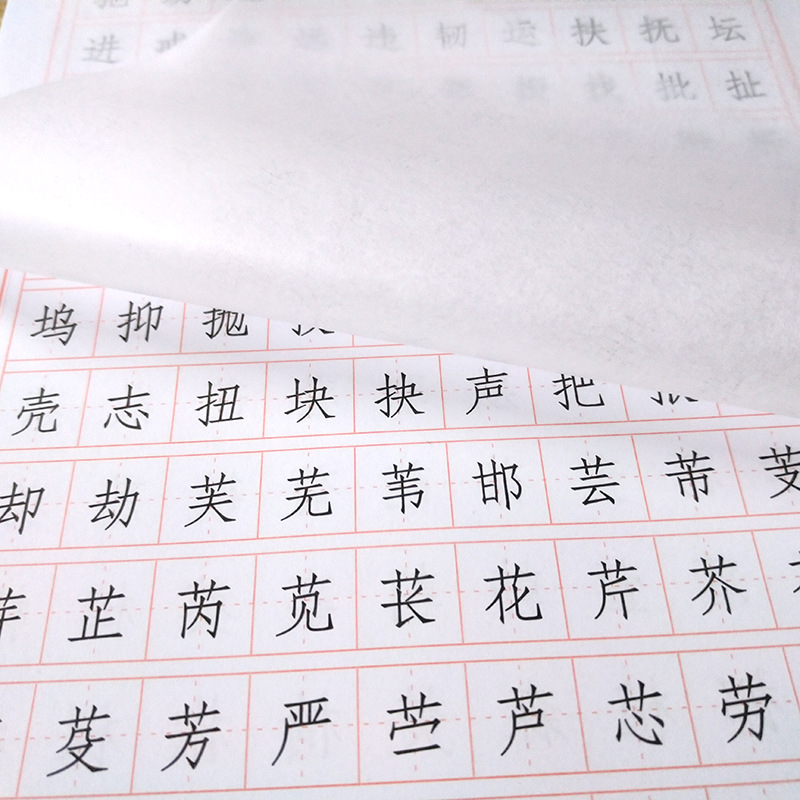 进 远 违 韧 运 扶 抚 坛
批 扯
坞 抑 抛
壳 志 扭 块 抉 声 把
却 劫 芙 芜 苇 邯 芸 芾 芰
芷 芮 苋 苌 花 芹 芥
芳 严 苎 芦 芯 劳